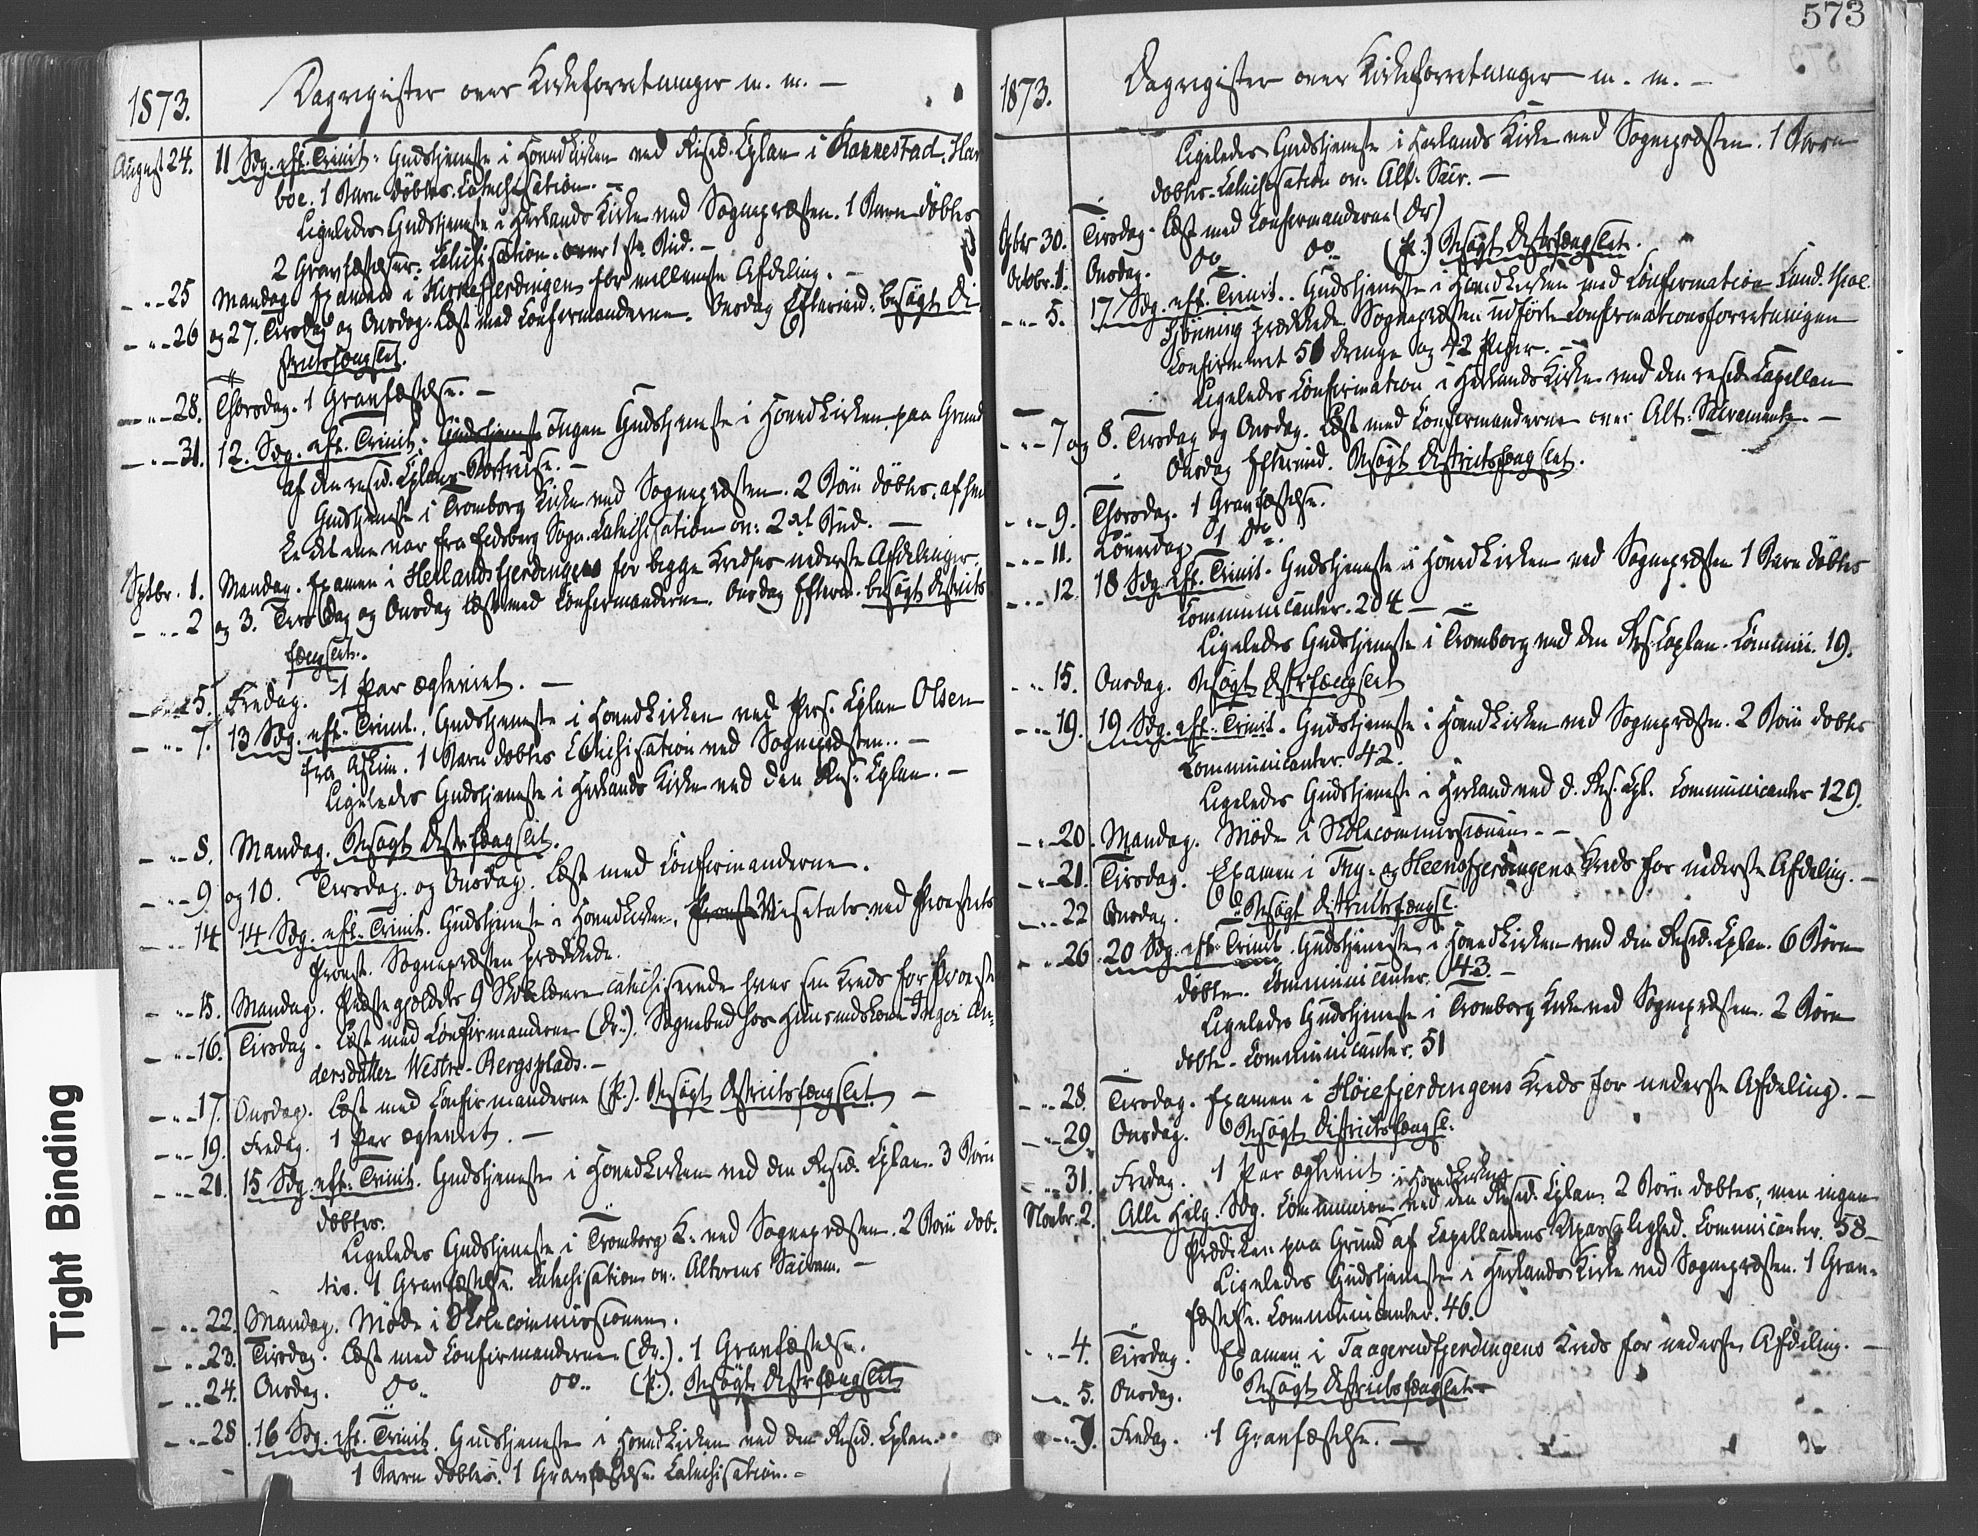 573
1873. Dagregister over Kirkeforretninger m. m. –
August 24. 11 Sdg. eft. Trinit. Gudstjeneste i Hovedkirken ved Resid. Cplan i Rakkestad, Har
boe. 1 Barn døbtes. Catechisation. –
Ligeledes Gudstjeneste i Herlands Kirke ved Sognepræsten. 1 Barn døbtes
2 Gravfæstelser. Catechisation. over 1ste Bud. –
– " – 25 Mandag Examen i Kirkefjerdingen for mellemste Afdeling. –
– " – 26 og 27. Tirsdag og Onsdag. Læst med Confirmanderne. Onsdag Eftermd. besøgt Di
strictsfængslet.
– " – 28. Thorsdag. 1 Gravfæstelse. –
– " – 31. 12. Sdg. eft. Trinit. Gudstjeneste Ingen Gudstjeneste i Hovedkirken paa Grund
af den resid. Cplans Bortreise. –
Gudstjeneste i Tromborg Kirke ved Sognepræsten. 2 Børn døbtes, af hvil
ke det ene var fra Eidsberg Sogn. Catechisation ov: 2det Bud. –
Sptbr. 1. Mandag. Examen i Herlandsfjerdingen for begge Kredses nederste Afdelinger.
– " – 2 og 3. Tirsdag og Onsdag Læst med Confirmanderne. Onsdag Efterm. besøgt Districts
fængslet.
– " – 5. Fredag. 1 Par ægteviet. –
– " – 7. 13 Sdg. eft. Trinit. Gudstjeneste i Hovedkirken ved Pers. Cplan Olsen
fra Askim. 1 Barn døbtes Catechisation ved Sognepræsten. –
Ligeledes Gudstjeneste i Herlands Kirke ved den Res. Cplan. –
– " – 8. Mandag. Besøgt Distrfængslet.
– " – 9 og 10. Tirsdag og Onsdag. Læst med Confirmanderne.
– " – 14 14 Sdg. eft. Trinit. Gudstjeneste i Hovedkirken. Visitats ved Constit
Provst. Sognepræsten prædikede.
– " – 15. Mandag. Præstegjeldets 9 Skolelærere catechiserede hver sin Kreds for Provste
– " – 16. Tirsdag. Læst med Confirmanderne (Dr.). Sognebud hos Huusmandskone Inger An-
dersdatter Westre-Bergsplads. –
– " – 17. Onsdag. Læst med Confirmanderne (P.). Besøgt Districtsfængslet. –
– " – 19. Fredag. 1 Par ægteviet. –
– " – 21. 15 Sdg. eft. Trinit. Gudstjeneste i Hovedkirken ved den Resid. Cplan. 3 Børn
døbtes.
Ligeledes Gudstjeneste i Tromborg K. ved Sognepræsten. 2 Børn døb-
tes. 1 Gravfæstelse. Catechisation ov: Alterens Sacram. –
– " – 22. Mandag. Møde i Skolecommissionen.
– " – 23. Tirsdag. Læst med Confirmanderne (Dr.). 1 Gravfæstelse.
– " – 24. Onsdag. Do Do (P.). Besøgt Distrfængslet
– " – 28 16 Sdg. eft. Trinit. Gudstjeneste i Hovedkirken ved den Resid. Cplan.
1 Barn døbtes. 1 Gravfæstelse. Catechisation. –
1873. Dagregister over Kirkeforretninger m. m. –
Ligeledes Gudstjeneste i Herlands Kirke ved Sognepræsten. 1 Barn
døbtes. Catechisation ov: Alt. Sacr. –
Sptbr 30. Tirsdag. Læst med Confirmanderne (Dr)
Octobr. 1. Onsdag. Do Do (P.) Besøgt Distrfængslet.
– " – 5. 17 Sdg. eft. Trinit. Gudstjeneste i Hovedkirken med Confirmation Cand. theol.
prædikede. Sognepræsten udførte Confirmationsforretningen
Confirmeret 51 Drenge og 42 Piger. –
Ligeledes Confirmation i Herlands Kirke ved den resid. Capellan
– " – 7 og 8. Tirsdag og Onsdag. Læst med Confirmanderne over Alt. Sacramente. –
Onsdag Eftermd. Besøgt Districtsfængslet.
– " – 9. Thorsdag. 1 Gravfæstelse.
– " – 11. Løverdag 1 Do.
– " – 12. 18 Sdg. eft. Trinit. Gudstjeneste i Hovedkirken ved Sognepræsten 1 Barn døbtes
Communicanter. 204 –
Ligeledes Gudstjeneste i Tromborg ved den Res. Caplan. Commun. 19.
– " – 15. Onsdag. Besøgt Distrfængslet
– " – 19. 19 Sdg. eft. Trinit. Gudstjeneste i Hovedkirken ved Sognepræsten. 2 Børn døbtes
Communicanter. 42.
Ligeledes Gudstjeneste i Herland ved d. Res. Cpl. Communicanter 129.
– " – 20. Mandag. Møde i Skolecommissionen. –
– " – 21. Tirsdag. Examen i Fry- og Heensfjerdingens Kreds for nederste Afdeling. –
– " – 22 Onsdag. Besøgt Districtsfængsl.
– " – 26 20 Sdg. eft. Trinit. Gudstjeneste i Hovedkirken ved den Resid. Cplan. 6 Børn
døbte. Communicanter. 43. –
Ligeledes Gudstjeneste i Tromborg Kirke ved Sognepræsten. 2 Børn
døbte. Communicanter. 51
– " – 28. Tirsdag. Examen i Høiefjerdingens Kreds for nederste Afdeling. –
– " – 29. Onsdag. Besøgt Districtsfængsl.
– " – 31. Fredag. 1 Par ægteviet
Novbr. 2. Alle Helg. Sdg. Communion i Hovedkirken ved den Resid. Cplan. 2 Børn døbtes, men ingen
Prædiken paa Grund af Capellanens Upasselighed. Communicanter. 58 –
Ligeledes Gudstjeneste i Herlands Kirke ved Sognepræsten. 1 Grav-
fæstelse. Communicanter. 46.
– " – 4. Tirsdag. Examen i Taagerudfjerdingens Kreds for nederste Afdeling. –
– " – 5. Onsdag. Besøgt Districtsfængslet –
– " – 7. Fredag. 1 Gravfæstelse. –
Tight Binding